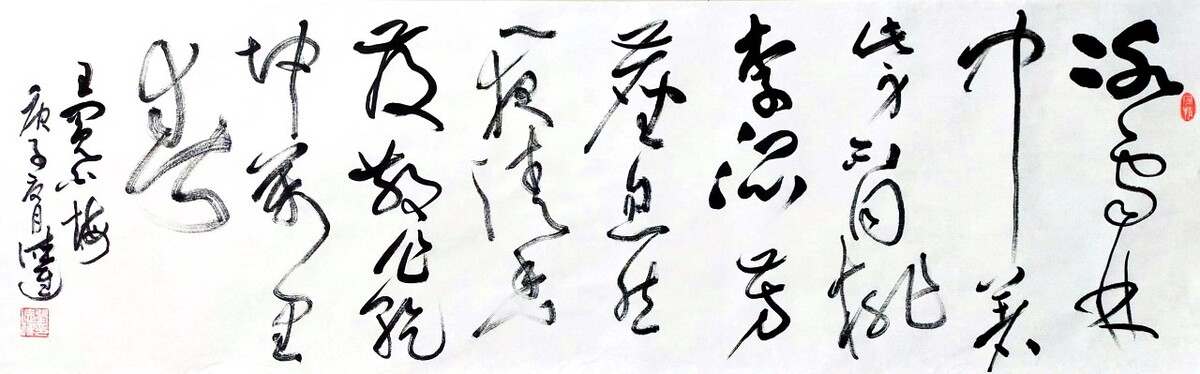 冰雪林
中著
此身不同桃
李混芳
塵忽然
一夜清香
發散作乾
坤萬里
春
王冕白梅
庚子夏月